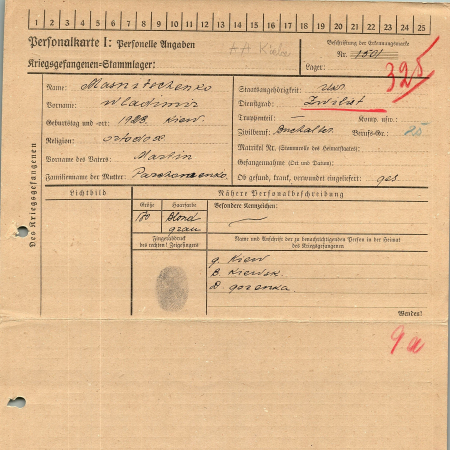 1 2 3 4 5 6 7 8 9 10 11 12 13 14 15 16 17 18 19 20 21 22 23 24 25
Personalkarte I: Personelle Angaben
Kriegsgefangenen-Stammlager:
Beschriftung der Erkennungsmarke
Nr. 1501
Lager:
325
Des Kriegsgefangenen
Name:
Vorname: Wladimir
Geburtstag und -ort: 1923. Kiew.
Religion: ortodox
Vorname des Vaters: Martin
Familienname der Mutter:
Staatsangehörigkeit:
Dienstgrad: Zivilist
Truppenteil: — Komp. usw.:
Zivilberuf: Buchalter. Berufs-Gr.: 25
Matrikel Nr. (Stammrolle des Heimatstaates):
Gefangennahme (Ort und Datum):
Ob gesund, krank, verwundet eingeliefert: ges.
Lichtbild
Nähere Personalbeschreibung
Größe Haarfarbe Besondere Kennzeichen:
Blond
grau
Fingerabdruck
des rechten! Zeigefingers
Name und Anschrift der zu benachrichtigenden Person in der Heimat
des Kriegsgefangenen
g. Kiew
B. Kiewsk.
D. gorenka.
Wenden!
9a